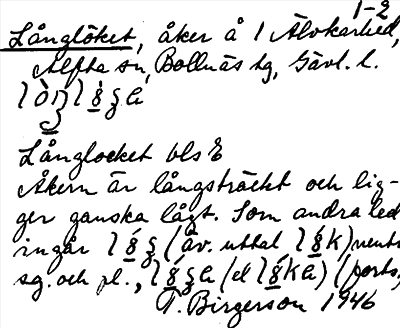 1-2
Långlöket, åker å 1 Älvkarhed,
Alfta sn, Bollnäs tg, Gävl. l.
Långlocket bls E
Åkern är långsträckt och lig-
ger ganska lågt. Som andra led
ingår (äv. uttal) neutr.
sg. och pl., (el (forts,
T. Birgerson 1946